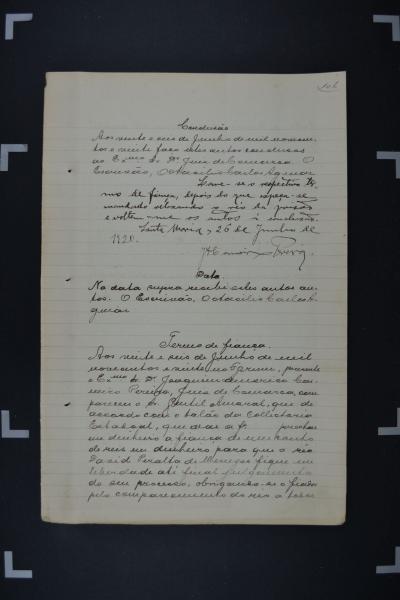 106
Conclusão
Aos vinte e seis de Junho de mil novecen-
tos e vinte faço estes autos conclusos
ao Exmo Sr. Dr. Juiz de Comarca. O
Escrivão, Octacilio Carlos Aguiar
Lavre-se o respectivo ter-
mo de fiança, depois do que expeça-se
mandado relaxando o réo da prisão
e voltem-me os autos á conclusão.
Santa Maria, 26 de Junho de
1920.
Data
Na data supra recebi estes autos au-
tos. O Escrivão, Octacilio Carlos A-
guiar
Termo de fiança.
Aos vinte e seis de Junho de mil
novecentos e vinte no Forum, perante
o Exmo Sr. Dr. Joaquim Americo Car-
neiro Pereira, Juiz de Comarca, com-
pareceu o Sr. Amaral, que de
accordo com o talão da Collectoria
Estadoal, que disse a fs. prestou
em dinheiro a fiança de um conto
de reis em dinheiro para que o réo
David Peralta de Menezes fique em
liberdade até final julgamento
do seu processo, obrigando-se o fiador
pelo comparecimento do réo a todos